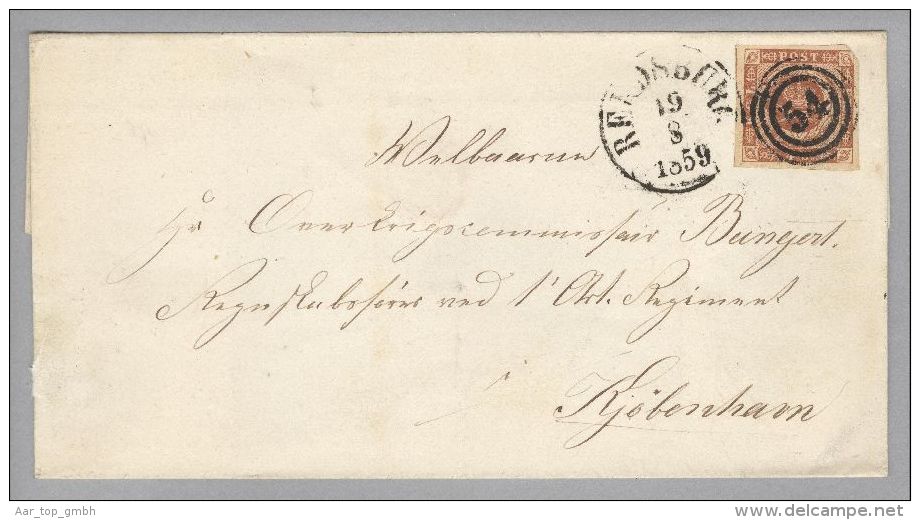 RENDSBURG
19
8
1859
POST
54
Welbaarne
Hr Overkrigscommissair Bungert.
Regnskabsfører ved 1' Art. Regiment
i
Kjöbenhavn
Aar_top_gmbh
delcampe.net